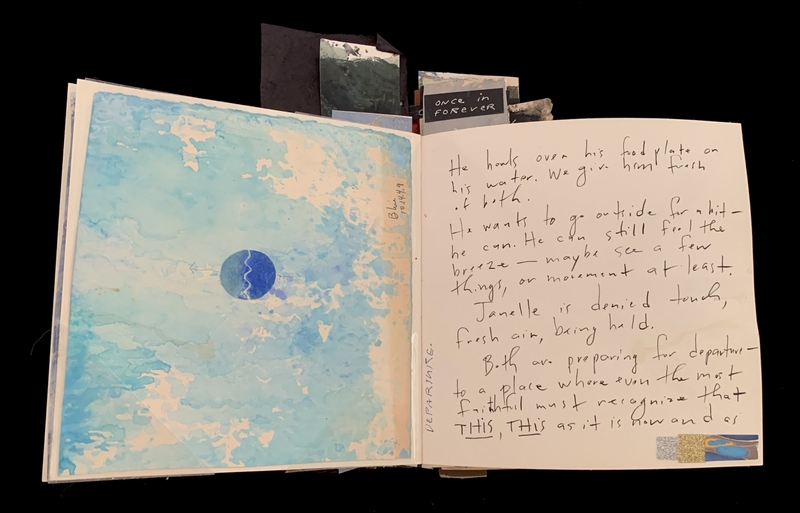 ONCE in
FOREVER
Blue
DEPARTURE.
He howls over his food plate on
his water. We give him fresh
of both.
He wants to go outside for a bit—
he can. He can still feel the
breeze — maybe see a few
things, or movement at least.
Janelle is denied touch,
fresh air, being held.
Both are preparing for departure—
to a place where even the most
faithful must recognize that
THIS, THIS as it is now and as